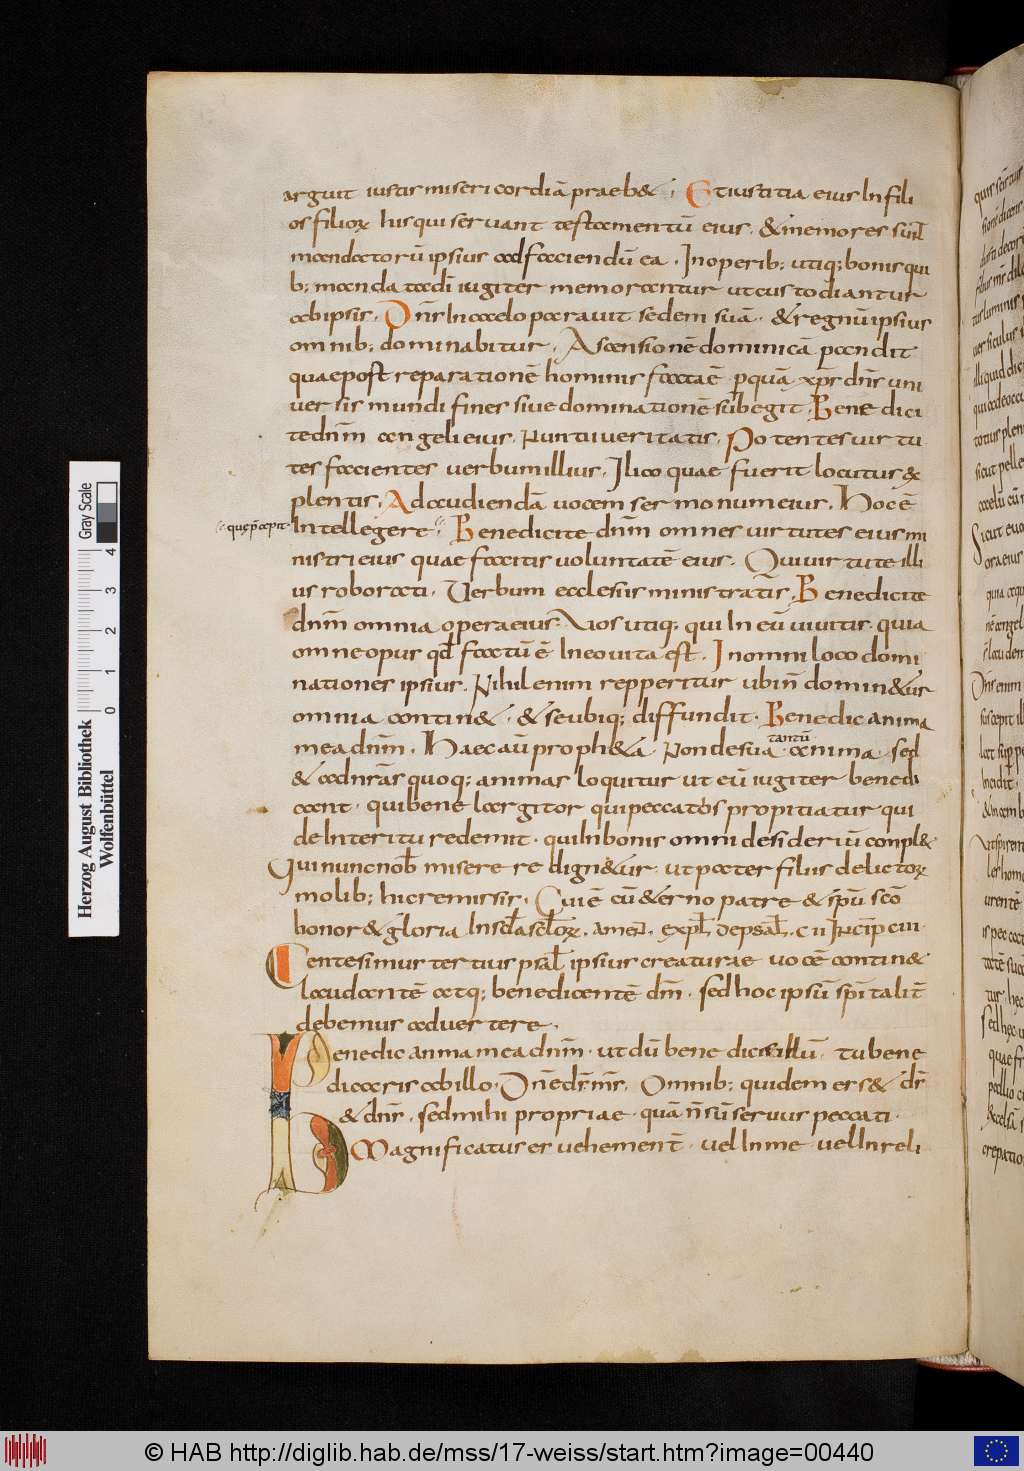 arguit iustis misericordiā praeb& ; Et iustitia eius In fili
os filiorꝝ his qui seruant testamentū eius . & memores sunt
mandatorū ipsius ad faciendū ea . In operib; utiq; bonis qui
b; mandata di iugiter memorantur ut custodiantur
ab ipsis . Dn̄s In caelo parauit sedem suā . & regnū ipsius
omnib; dominabitur . Ascensionē dominicā pandit
quae post reparationē hominis factaē ꝑquā xp̄s dn̄s uni
uersis mundi fines siue dominationē subegit . Benedici
te dn̄m angeli eius . Nuntii ueritatis . Potentes uirtu
tes facientes uerbum illius . Ilico quae fuerit locutus &
plentis . Ad audiendā uocem sermonum eius . Hoc ē
quę p̄cepit
Intellegere . Benedicite dn̄m omnes uirtutes eius mi
nistri eius quae facitis uoluntatē eius . Qui uirtute illi
us roborati . Uerbum ecclesiis ministratis . Benedicite
dn̄m omnia opera eius . Uos utiq; qui In eū uiuitis . quia
omne opus qd̄ factū ē In eo uita est . In omni loco domi
nationes ipsius . Nihil enim repperitur ubi n̄ domin&ur
omnia contin& . & se ubiq; diffundit . Benedic anima
mea dn̄m . Haec aū proph&a . Non de sua tantū anima sed
& ad nr̄ās quoq; animas loquitur ut eū iugiter benedi
cant . qui bene largitor qui peccatis propitiatur qui
de Interitu redemit . qui In bonis omni desideriū conpl&
Qui nunc nob̄ miserere dign&ur . ut pater filiis delictorꝝ
molib; hic remissis . Cui ē cū &erno patre & sp̄u sc̄o
honor & gloria In sc̄la sc̄lorꝝ . amen . expl̄ de psal̄ . c ii Incip̄ ciii .
Centesimus tertius psal̄ ipsius creaturae uocē contin&
laudantē atq; benedicentē dm̄ . sed hoc ipsū sp̄italit̄
debemus aduertere .
Benedic anima mea dn̄m . ut dū benedicis illū . tu bene
dicaris ab illo . Dn̄e ds̄ ms̄ . Omnib; quidem es & ds̄
& dn̄s . sed mihi propriae . quā n̄ sū seruus peccati .
Magnificatus es uehement̄ . uel In me uel In reli
Herzog August Bibliothek
Wolfenbüttel
Gray Scale
0 1 2 3 4
© HAB http://diglib.hab.de/mss/17-weiss/start.htm?image=00440